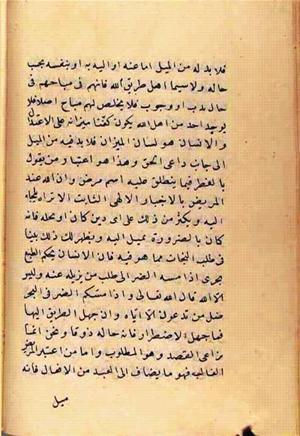 فلا بد له من الميل اما عنه او اليه به او بنفسه بحسب
حاله ولا سيما اهل طريق الله فانهم في مباحهم في
حال ندب او وجوب فلا يخلص لهم مباح اصلا فلا
يوجد احد من اهل الله يكون كفتا ميزانه على الاعتدال
والانسان هو لسان الميزان فلا بد فيه من الميل
الى جانب داعى الحق وهذا هو اعتبار من يقول
بالفطر فيما ينطلق عليه اسم مرض وان الله عند
المريض بالاخبار الالهى الثابت الا تراه يلجأ
اليه ويكثر من ذلك على اى دين كان او نحلة فانه
كان بالضرورة يميل اليه ويظهر لك ذلك بينا
في طلب النجات مما هو فيه فان الانسان بحكم الطبع
يجرى اذا مسه الضر الى طلب من يزيله عنه وليس
الا الله قال الله تعالى واذا مسكم الضر في البحر
ضل من تدعون الا اياه وان جهل الطريق اليها
فما جهل الاضطرار فانه حاله ذوقا ونحن انما
نراعى القصد وهو المطلوب واما من اعتبر المرض
الغالب فهو ما يضاف الى العبد من الافعال فانه
ميل